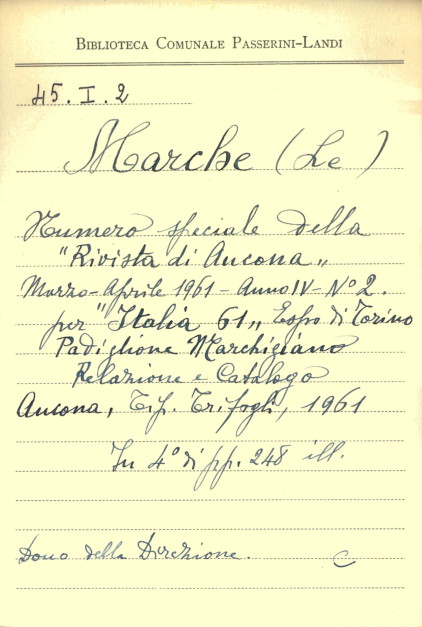 BIBLIOTECA COMUNALE PASSERINI-LANDI
45. I. 2
Marche (Le)
Numero speciale della
"Rivista di Ancona„
Marzo-Aprile 1961 - Anno IV - Nº 2.
per "Italia 61„ Espo di Torino
Padiglione Marchigiano
Relazione e Catalogo
Ancona, Tip. Trifogli, 1961
In 4º di pp. 248 ill.
Dono della Direzione. C